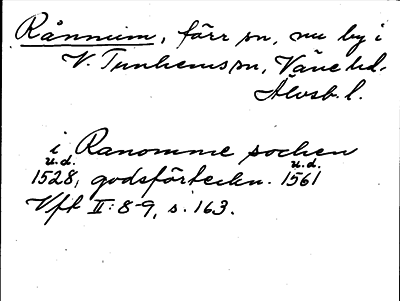 Rånnum, förr sn, nu by i
V. Tunhems sn, Väne hd.
Älvsb. l.
i Ranomme socken
u.d. u.d.
1528, godsförteckn. 1561
Vft II: 8-9, s. 163.